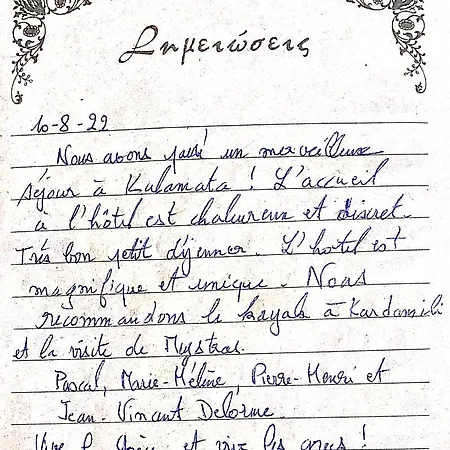 Σημειώσεις
10-8-22
Nous avons passé un merveilleux
séjour à Kalamata ! L'accueil
à l'hôtel est chaleureux et discret.
Très bon petit déjeuner. L'hôtel est
magnifique et unique. Nous
recommandons le kayak à Kardamili
et la visite de Mystras.
Pascal, Marie-Hélène, Pierre-Henri et
Jean-Vincent Delorme
Vive la Grèce et vive les grecs !